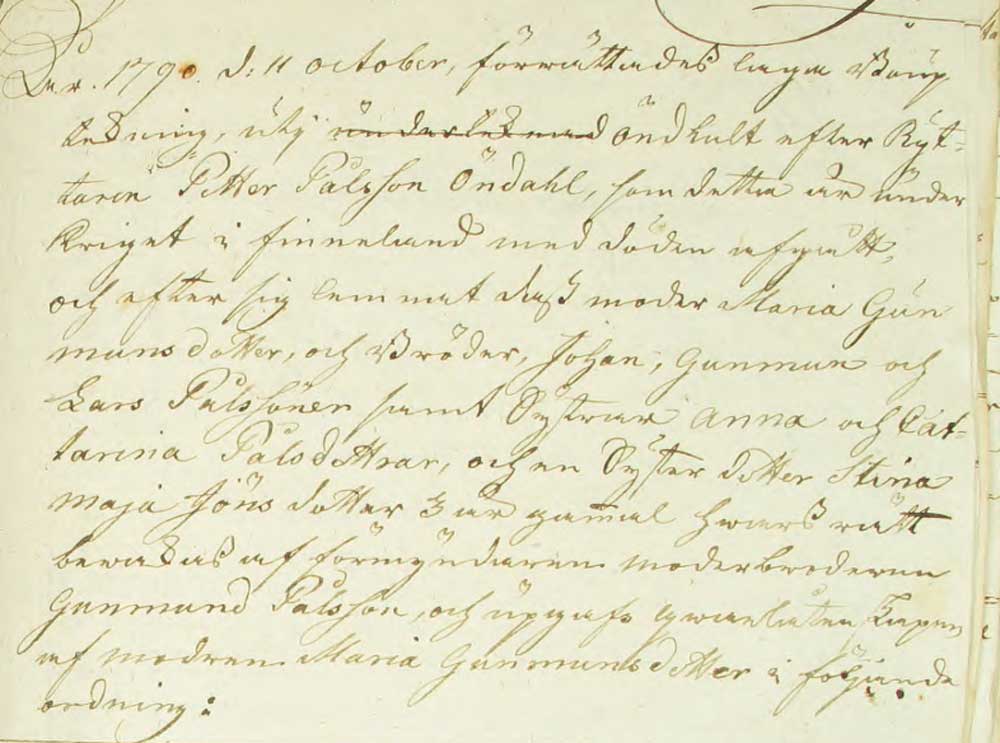 Åar. 1790. d: 11 october, förrättades laga Boup
tekning, uty ~~underteknad~~ Öndhult efter Ryt-
taren Petter Pålsson Öndahl, som detta år under
kriget i finneland med döden afgått,
och efter sig lemnat dess moder Maria Gun
munsdotter, och Bröder, Johan, Gunmun och
Lars Pålssöner samt Systrar Anna och Cat-
tarina Palsdottrar, och en Syster dotter Stina
Maja Jöns dotter 3 år gammal hwars rätt
bewakas af förmyndaren moderbroderen
Gunmund Pålsson, och upgafs qwarlåten Egen
af modren Maria Gunmunsdotter i följande
ordning: